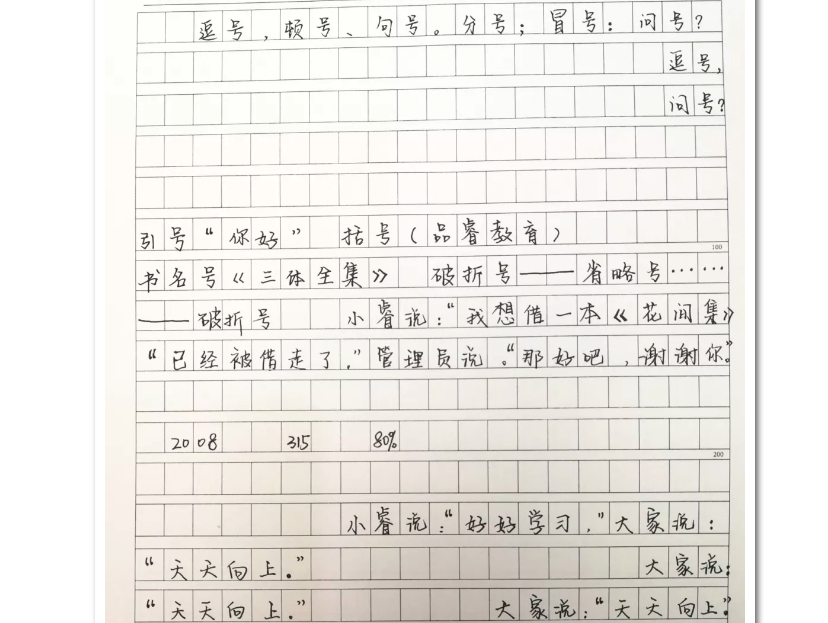 逗号，顿号、句号。分号；冒号：问号？
逗号，
问号？
引号“你好” 括号（品睿教育）
100
书名号《三体全集》 破折号——省略号……
——破折号 小睿说：“我想借一本《花间集》
“已经被借走了，”管理员说。“那好吧，谢谢你。”
2008 315 80%
200
小睿说：“好好学习，”大家说：
“天天向上。” 大家说：
“天天向上。” 大家说：“天天向上。”